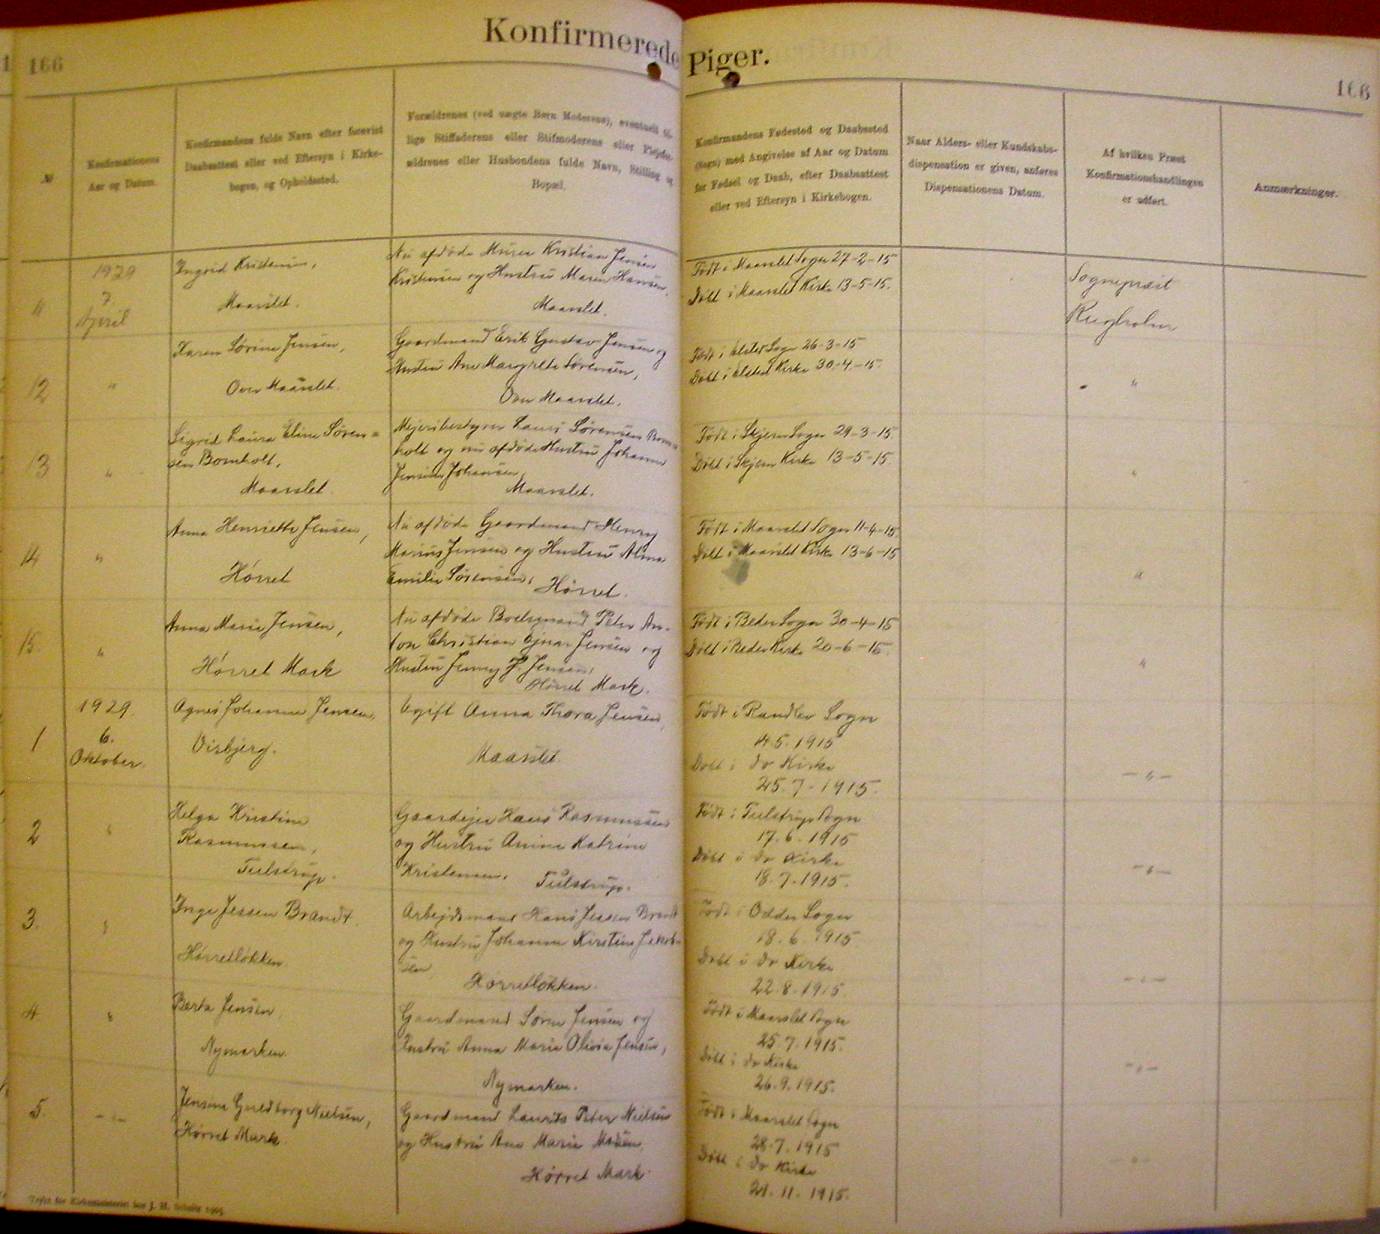 Konfirmerede Piger.
166
166
№
Konfirmationens
Aar og Datum.
Konfirmandens fulde Navn efter forevist
Daabsattest eller ved Eftersyn i Kirke-
bogen, og Opholdssted.
Forældrenes (ved uægte Børn Moderens), eventuelt til-
lige Stiffaderens eller Stifmoderens eller Plejefor-
ældrenes eller Husbondens fulde Navn, Stilling og
Bopæl.
Konfirmandens Fødested og Daabssted
(Sogn) med Angivelse af Aar og Datum
for Fødsel og Daab, efter Daabsattest
eller ved Eftersyn i Kirkebogen.
Naar Alders- eller Kundskabs-
dispensation er given, anføres
Dispensationens Datum.
Af hvilken Præst
Konfirmationshandlingen
er udført.
Anmærkninger.
11
1929
7.
April
Ingrid Kristensen,
Maarslet.
Nu afdøde Murer Kristian Jensen
Kristensen og Hustru Maren Hansen.
Maarslet.
Født i Maarslet Sogn 27-2-15
Døbt i Maarslet Kirke 13-5-15.
Sognepræst
Rugholm
12
"
Karen Sørine Jensen,
Over Maarslet.
Gaardmand Erik Gustav Jensen og
Hustru Ane Margrethe Sørensen,
Over Maarslet.
Født i Sogn 26-3-15
Døbt i Kirke 30-4-15.
"
13
"
Sigrid Laura Eline Søren=
sen Bornholt,
Maarslet.
Mejeribestyrer Laurs Sørensen Born=
holt og nu afdøde Hustru Johanne
Jensine Johansen,
Maarslet.
Født i Skjern Sogn 29-3-15
Døbt i Skjern Kirke 13-5-15.
"
14
"
Anna Henriette Jensen,
Hørret
Nu afdøde Gaardmand Henry
Marius Jensen og Hustru Alma
Emilie Sørensen, Hørret.
Født i Maarslet Sogn 11-4-15
Døbt i Maarslet Kirke 13-6-15
"
15.
"
Anna Marie Jensen,
Hørret Mark
Nu afdøde Boelsmand Peter An-
ton Christian Ejnar Jensen og
Hustru Jenny P. Jensen,
Hørret Mark.
Født i Beder Sogn 30-4-15
Døbt i Beder Kirke 20-6-15.
"
1
1929.
6.
Oktober.
Agnes Johanne Jensen,
Visbjerg.
Ugift Anna Thora Jensen,
Maarslet.
Født i Randlev Sogn
4.5.1915
Døbt i do Kirke
25.7-1915.
- " -
2
"
Helga Kristine
Rasmussen,
Tulstrup.
Gaardejer Hans Rasmussen
og Hustru Amine Katrine
Kristensen. Tulstrup.
Født i Tulstrup Sogn
17.6.1915
Døbt i do Kirke
18.7.1915.
- " -
3.
"
Inge Jessen Brandt.
Hørretløkken.
Arbejdsmand Hans Jessen Brandt
og Hustru Johanne Kirstine Jakob-
sen
Hørretløkken.
Født i Odder Sogn
18.6.1915
Døbt i do Kirke
22.8.1915.
- " -
4.
"
Berta Jensen
Nymarken
Gaardmand Søren Jensen og
Hustru Anna Marie Olivia Jensen,
Nymarken.
Født i Maarslet Sogn
25.7.1915.
Døbt i do Kirke
26.9.1915.
- " -
5.
- " -
Jensine Guldborg Nielsen,
Hørret Mark.
Gaardmand Laurits Peter Nielsen
og Hustru Ane Marie
Hørret Mark.
Født i Maarslet Sogn
28.7.1915
Døbt i do Kirke
21.11.1915.
- " -
Trykt for Kirkeministeriet hos J. H. Schultz 1905